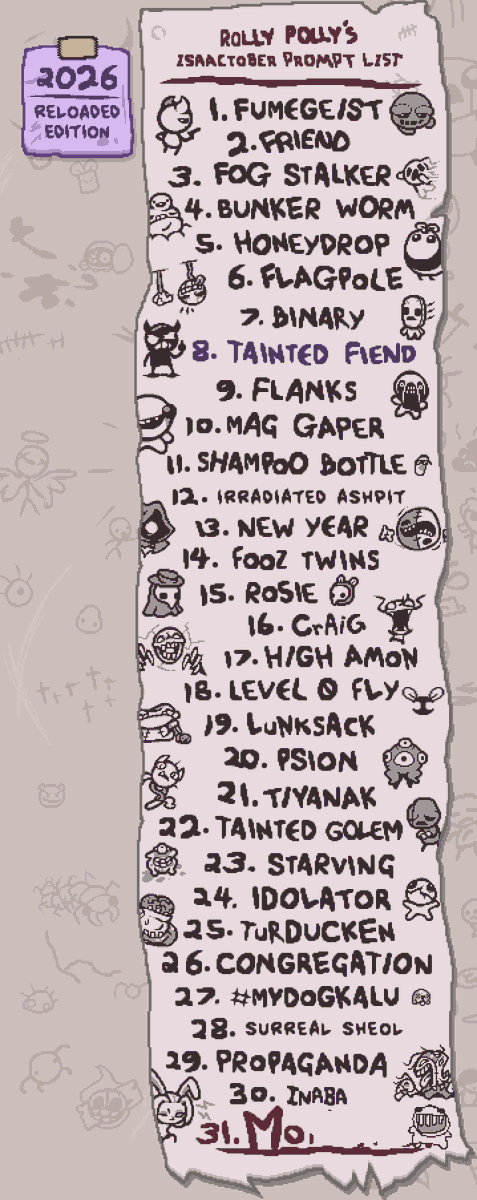 ROLLY POLLY'S
ISAACTOBER PROMPT LIST
2026
RELOADED
EDITION
1. FUMEGEIST
2. FRIEND
3. FOG STALKER
4. BUNKER WORM
5. HONEYDROP
6. FLAGPOLE
7. BINARY
8. TAINTED FIEND
9. FLANKS
10. MAG GAPER
11. SHAMPOO BOTTLE
12. IRRADIATED ASHPIT
13. NEW YEAR
14. FOOZ TWINS
15. ROSIE
16. CrAiG
17. HIGH AMON
18. LEVEL 0 FLY
19. LuNKSACK
20. PSION
21. TIYANAK
22. TAINTED GOLEM
23. STARVING
24. IDOLATOR
25. TuRDUCKEN
26. CONGREGATION
27. #MYDOGKALU
28. SURREAL SHEOL
29. PROPAGANDA
30. INABA
31. Mo.